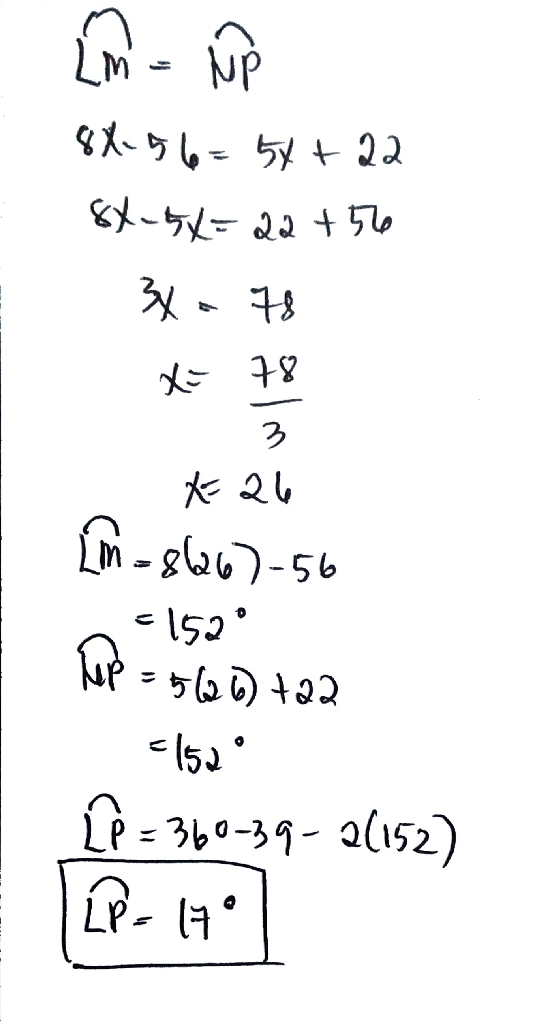 ⌒LM = ⌒NP
8x - 56 = 5x + 22
8x - 5x = 22 + 56
3x = 78
x = 78/3
x = 26
⌒LM = 8(26) - 56
= 152°
⌒NP = 5(26) + 22
= 152°
⌒LP = 360 - 39 - 2(152)
⌒LP = 17°